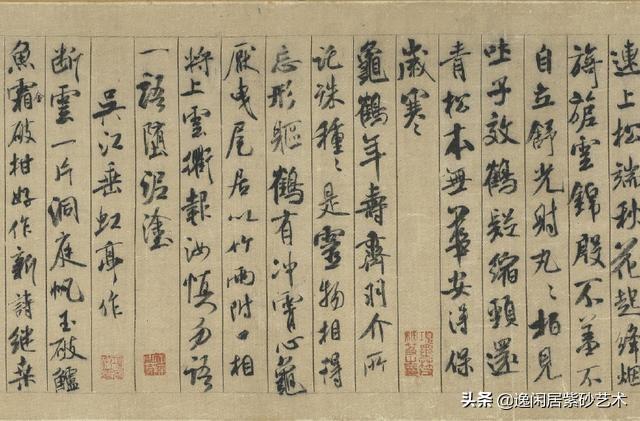 連上松端秋花起絳烟
旖旎雲錦殷不羞不
自立舒光射丸〻柏見
吐子效鶴疑縮頸還
青松本無華安得保
歲寒
龜鶴年壽齊羽介所
託殊種〻是靈物相得
忘形軀鶴有沖霄心龜
厭曳尾居以竹兩附口相
將上雲衢報汝慎勿語
一語墮泥塗
吳江垂虹亭作
断雲一片洞庭帆玉破鱸
魚霜金破柑好作新詩繼桑
头条 @逸闲居紫砂艺术